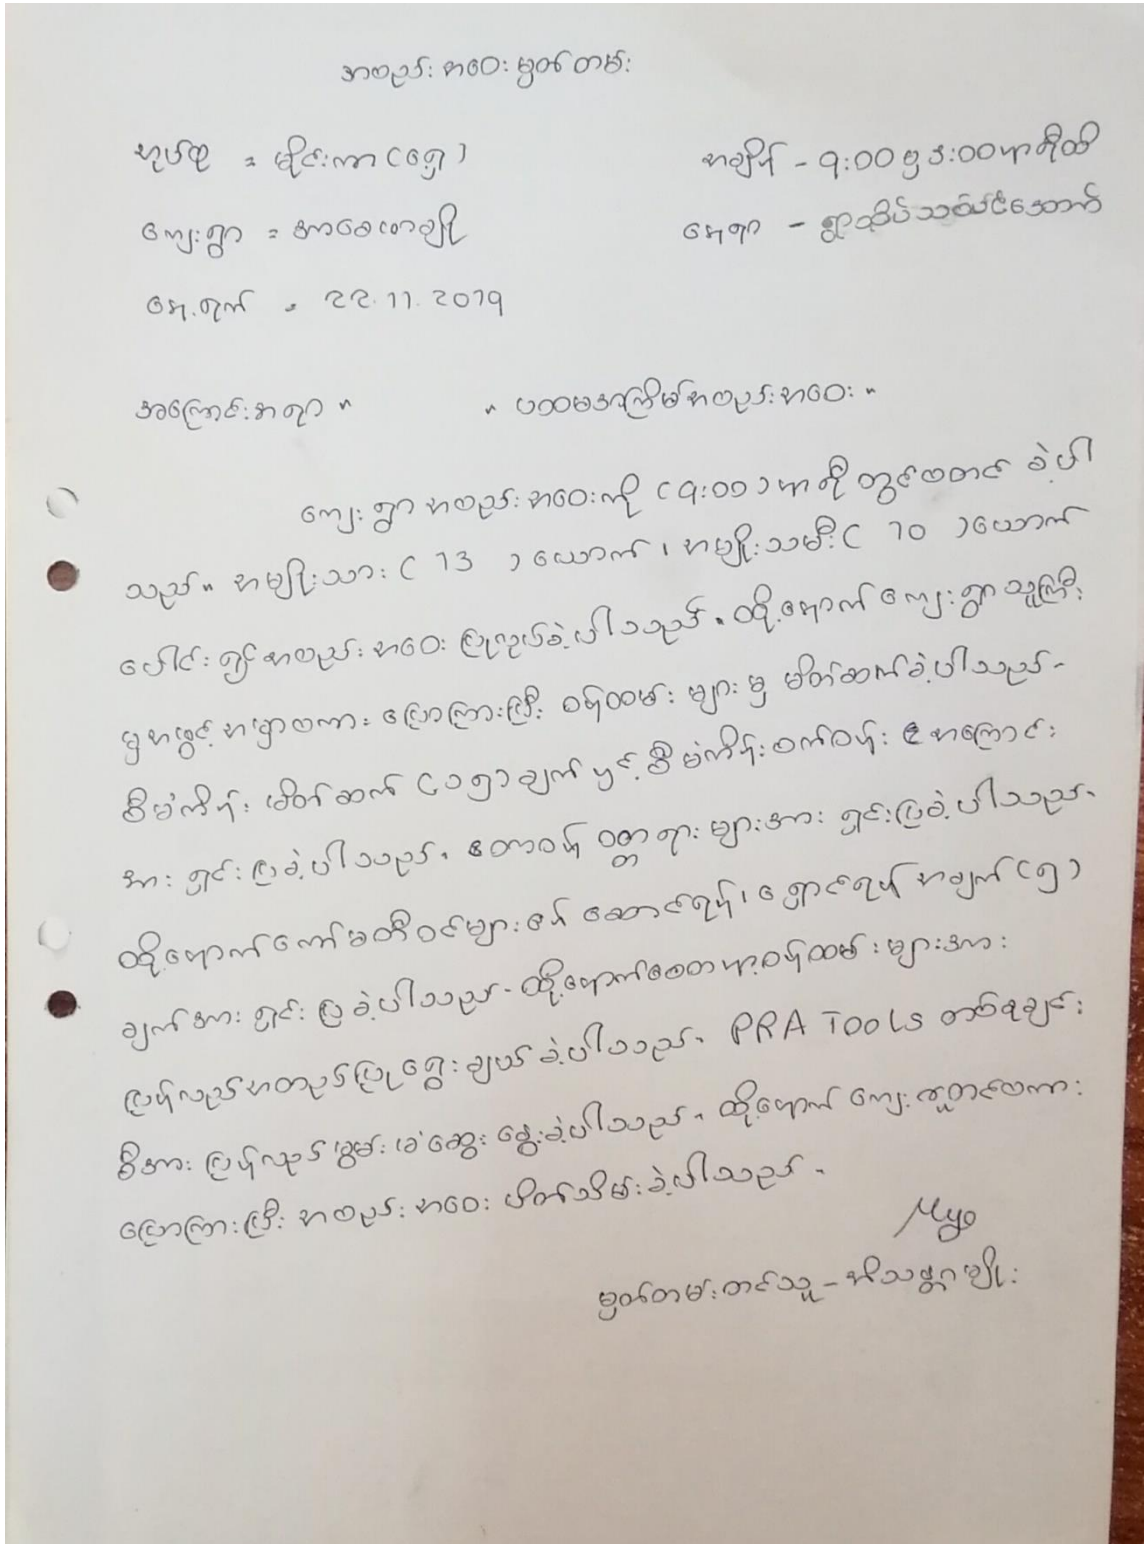 အစည်းအဝေးမှတ်တမ်း
အုပ်စု = မိုင်းကာ (ရှေ့) အချိန် - ၇:၀၀ မှ ၃:၀၀ နာရီထိ
ကျေးရွာ = နေရာ - ရွာထိပ်သစ်ပင်အောက်
နေ့ရက် = 22.11.2019
အကြောင်းအရာ " " ပထမအကြိမ်အစည်းအဝေး "
ကျေးရွာအစည်းအဝေးကို (၇:၀၀) နာရီတွင်စတင်ခဲ့ပါ
သည်။ အမျိုးသား ( 13 ) ယောက်၊ အမျိုးသမီး ( 10 ) ယောက်
ပေါင်း၍ အစည်းအဝေးပြုလုပ်ခဲ့ပါသည်။ ထို့နောက် ကျေးရွာသူကြီး
မှအဖွင့်အမှာစကားပြောကြားပြီး ဝန်ထမ်းများမှ မိတ်ဆက်ခဲ့ပါသည်။
စီမံကိန်းမိတ်ဆက် (၁၅) ချက်နှင့် စီမံကိန်းစက်ဝန်း ၏အကြောင်း
အားရှင်းပြခဲ့ပါသည်။ တာဝန်ဝတ္တရားများအားရှင်းပြခဲ့ပါသည်။
ထို့နောက်ကော်မတီဝင်များ၏ ဆောင်ရန်၊ ရှောင်ရန် အချက် (၅)
ချက်အားရှင်းပြခဲ့ပါသည်။ ထို့နောက်စေတနာ့ဝန်ထမ်းများအား
ပြန်လည်အတည်ပြုရွေးချယ်ခဲ့ပါသည်။ PRA Tools တစ်ခုချင်း
စီအားပြန်လည်ခြုံငုံဆွေးနွေးခဲ့ပါသည်။ ထို့နောက် ကျေးဇူးတင်စကား
ပြောကြားပြီး အစည်းအဝေးပိတ်သိမ်းခဲ့ပါသည်။
Myo
မှတ်တမ်းတင်သူ -